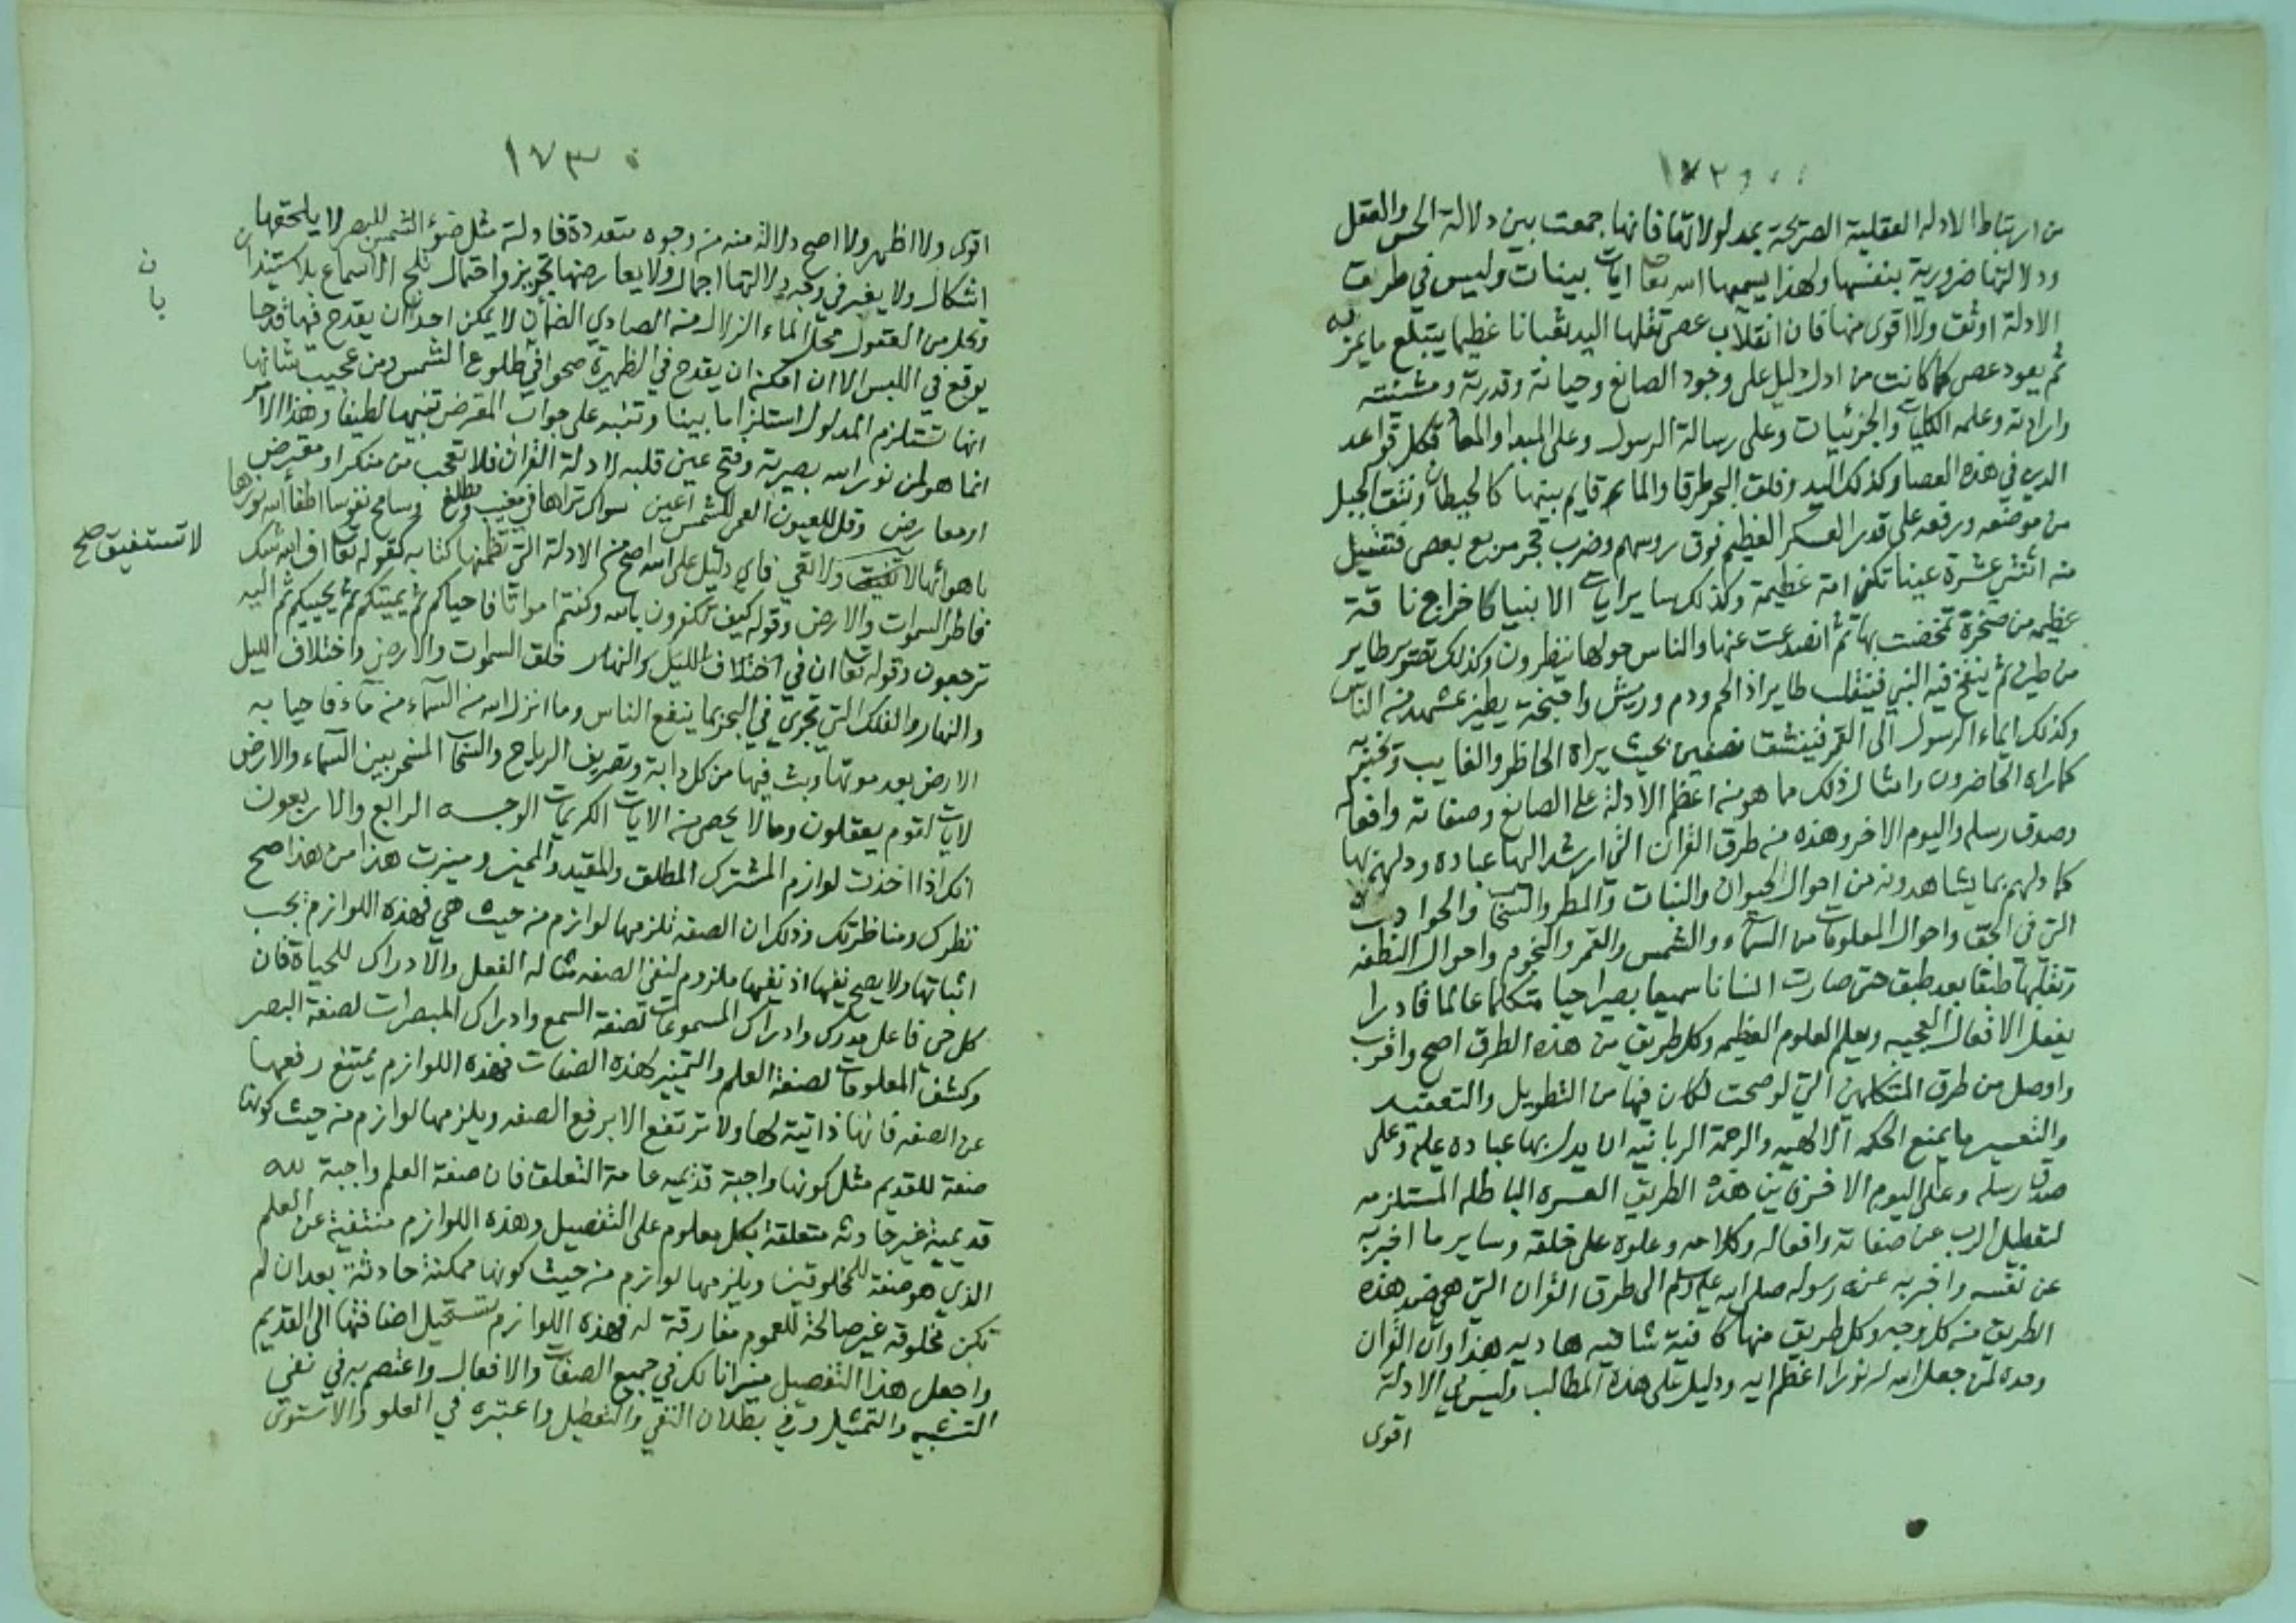 ١٧٢
من ارتباط الادله العقلية الصريحة بمدلولاتها فانها جمعت بين دلالة الحس والعقل
ودلالتها ضرورية بنفسها ولهذا يسميها الله تعا ايات بينات وليس في طرق
الادلة اوثق ولا اقوى منها فان انقلاب عصى تقلها اليد ثعبانا عظيما يبتلع ما يمر به
ثم يعود عصى كما كانت من ادل دليل على وجود الصانع وحياته وقدرته ومشئته
وارادته وعلمه الكليات والجزئيات وعلى رسالة الرسول وعلى المبدا والمعاد فكل قواعد
الدين في هذه العصا وكذلك اليد وفلق البحر طرقا والماء قايم بينها كالحيطان ونتق الجبل
من موضعه ورفعه على قدر العسكر العظيم فوق روسهم وضرب حجر مربع بعصى فتسيل
منه اثنتي عشرة عينا تكفي امة عظيمة وكذلك ساير ايات الانبيا كاخراج ناقة
عظيمه من صخرة تمخضت بها ثم انصدعت عنها والناس حولها ينظرون وكذلك تصوير طاير
من طين ثم ينفخ فيه النبي فينقلب طايرا ذا لحم ودم وريش واجنحة يطير بمشهد من الناس
وكذلك ايماء الرسول الى القمر فينشق نصفين بحيث يراه الحاظر والغايب ويخبر به
كما راه الحاضرون وامثال ذلك مما هو من اعظم الادلة على الصانع وصفاته وافعاله
وصدق رسله واليوم الاخر وهذه من طرق القران التي ارشد اليها عباده ودلهم بها
كما دلهم بما يشاهدونه من احوال الحيوان والنبات والمطر والسحاب والحوادث
التي في الجو واحوال المعلومات من السماء والشمس والقمر والنجوم واحوال النطفه
وتقلبها طبقا بعد طبق حتى صارت انسانا سميعا بصيرا حيا متكلما عالما قادرا
يفعل الافعال العجيبه ويعلم العلوم العظيمه وكل طريق من هذه الطرق اصح واقرب
واوصل من طرق المتكلمين التي لو صحت لكان فيها من التطويل والتعقيد
والتعسير ما يمنع الحكمه الالهيه والرحمة الربانيه ان يدل بها عباده عليه وعلى
صدق رسله وعلى اليوم الاخر فاين هذه الطريق العسره الباطله المستلزمه
لتعطيل الرب عن صفاته وافعاله وكلامه وعلوه على خلقه وساير ما اخبر به
عن نفسه واخبر به عنه رسوله صلى الله عليه وسلم الى طرق القران التي هي ضد هذه
الطريق من كل وجه وكل طريق منها كافية شافيه هاديه هذا وان القران
وحده لمن جعل الله له نورا اعظم ايه ودليل على هذه المطالب وليس في الادلة
اقوى
١٧٣
اقوى ولا اظهر ولا اصح دلالة منه من وجوه متعددة فادلته مثل ضوء الشمس للبصر لا يلحقها
اشكال ولا يغبر في وجه دلالتها اجمال ولا يعارضها تجويز واحتمال تلج الاسماع بلا استيذان
وتحل من العقول محل الماء الزلال من الصادي الضمآن لا يمكن احد ان يقدح فيها قدحا
يوقع في اللبس الا ان امكنه ان يقدح في الظهيرة صحوا في طلوع الشمس ومن عجيب شانها
انها تستلزم المدلول استلزاما بينا وتنبه على جواب المعترض تنبيها لطيفا وهذا الامر
انما هو لمن نور الله بصيرته وفتح عين قلبه لادلة القران فلا تعجب من منكر او معترض
او معارض وقل للعيون العمي للشمس اعين سواك تراها في مغيب ومطلع وسامح نفوسا اطفأ الله نورها
باهوائها لا تستفيق ولا تعي فاي دليل على الله اصح من الادلة التي تظمنها كتابه كقوله تعا افي الله شك
لا تستفيق صح
فاطر السموات والارض وقوله كيف تكفرون بالله وكنتم امواتا فاحياكم ثم يميتكم ثم يحييكم ثم اليه
ترجعون وقوله تعا ان في اختلاف الليل والنهار خلق السموات والارض واختلاف الليل
والنهار والفلك التي تجري في البحر بما ينفع الناس وما انزل الله من السماء من ماء فاحيا به
الارض بعد موتها وبث فيها من كل دابة وتصريف الرياح والسحاب المسخر بين السماء والارض
لايات لقوم يعقلون ومالا يحصى من الايات الكريمات الوجه الرابع والاربعون
انك اذا اخذت لوازم المشترك المطلق والمقيد والمميز وميزت هذا من هذا صح
نظرك ومناظرتك وذلك ان الصفه تلزمها لوازم من حيث هي فهذه اللوازم يجب
اثباتها ولا يصح نفيها اذ نفيها ملزوم لنفي الصفه مثاله الفعل والادراك للحياة فان
كل حي فاعل مدرك وادراك المسموعات لصفة السمع وادراك المبصرات لصفة البصر
وكشف المعلومات لصفة العلم والتمييز لهذه الصفات فهذه اللوازم يمتنع رفعها
عن الصفه فانها ذاتية لها ولا ترتفع الا برفع الصفه ويلزمها لوازم من حيث كونها
صفة للقديم مثل كونها واجبة قديمه عامة التعلق فان صفة العلم واجبة لله
قديمية غير حادثه متعلقة بكل معلوم على التفصيل وهذه اللوازم منتفية عن العلم
الذي هو صفة للمخلوقين ويلزمها لوازم من حيث كونها ممكنة حادثة بعد ان لم
تكن مخلوقه غير صالحة للعموم مفارقة له فهذه اللوازم تستحيل اضافتها الى القديم
واجعل هذا التفصيل ميزانا لك في جميع الصفات والافعال واعتصم به في نفي
التشبيه والتمثيل وفي بطلان النفي والتعطيل واعتبره في العلو والاستوى